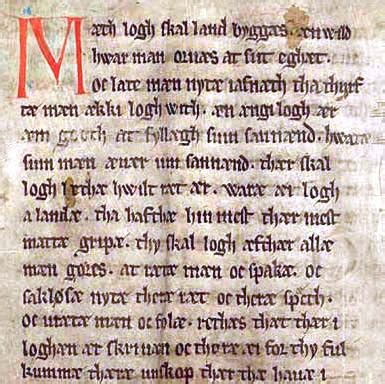 Mæth logh skal land byggæs. æn wild
hwar man oruæs at sit eghæt.
oc late mæn nytæ iafnæth tha thyrf
tæ mæn ækki logh with. æn ængi logh ær
æm goth at fyllægh sum sannænd. hwaræ
sum mæn æuær um sannænd. thær skal
logh lethæ hwilt ræt ær. waræ æi logh
a landæ. tha hafthæ hin mest thær mest
mattæ gripæ. thy skal logh æfthær allæ
mæn gøres. at rætæ mæn oc spakæ. oc
sakløsæ nytæ theræ ræt oc theræ spěkh.
oc urætæ mæn oc folæ. rethæs thæt thær i
loghæn ær skriuan oc thoræ æi for thy ful
kummæ theræ unskop thær thæ hauæ i